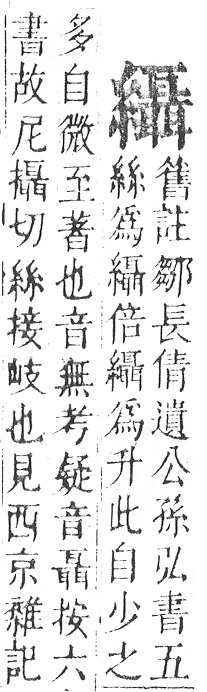 䌰
舊註鄒長倩遺公孫弘書五
絲爲䌰倍䌰爲升此自少之
多自微至著也音無考疑音聶按六
書故尼攝切絲接岐也見西京雜記